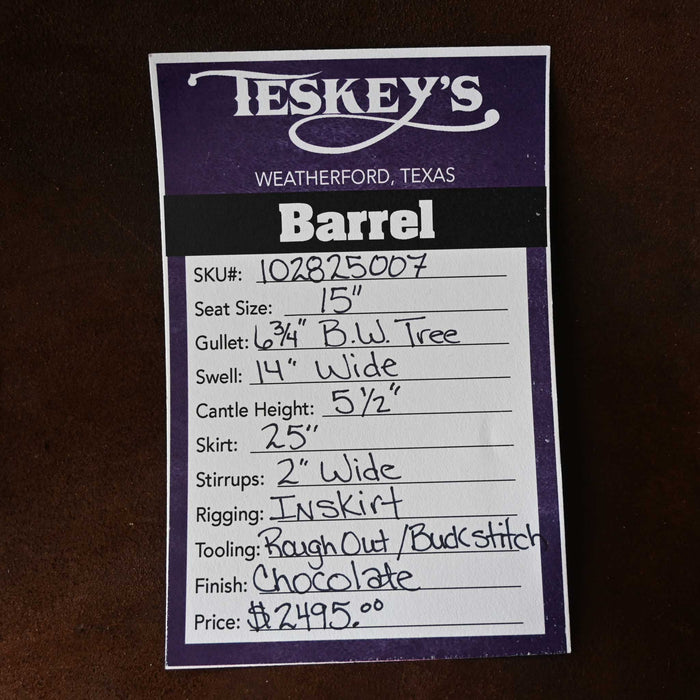 TESKEY'S
WEATHERFORD, TEXAS
Barrel
SKU#: 102825007
Seat Size: 15"
Gullet: 6¾" B.W. Tree
Swell: 14" Wide
Cantle Height: 5 1/2"
Skirt: 25"
Stirrups: 2" Wide
Rigging: Inskirt
Tooling: Rough Out / Buckstitch
Finish: Chocolate
Price: $2495.00